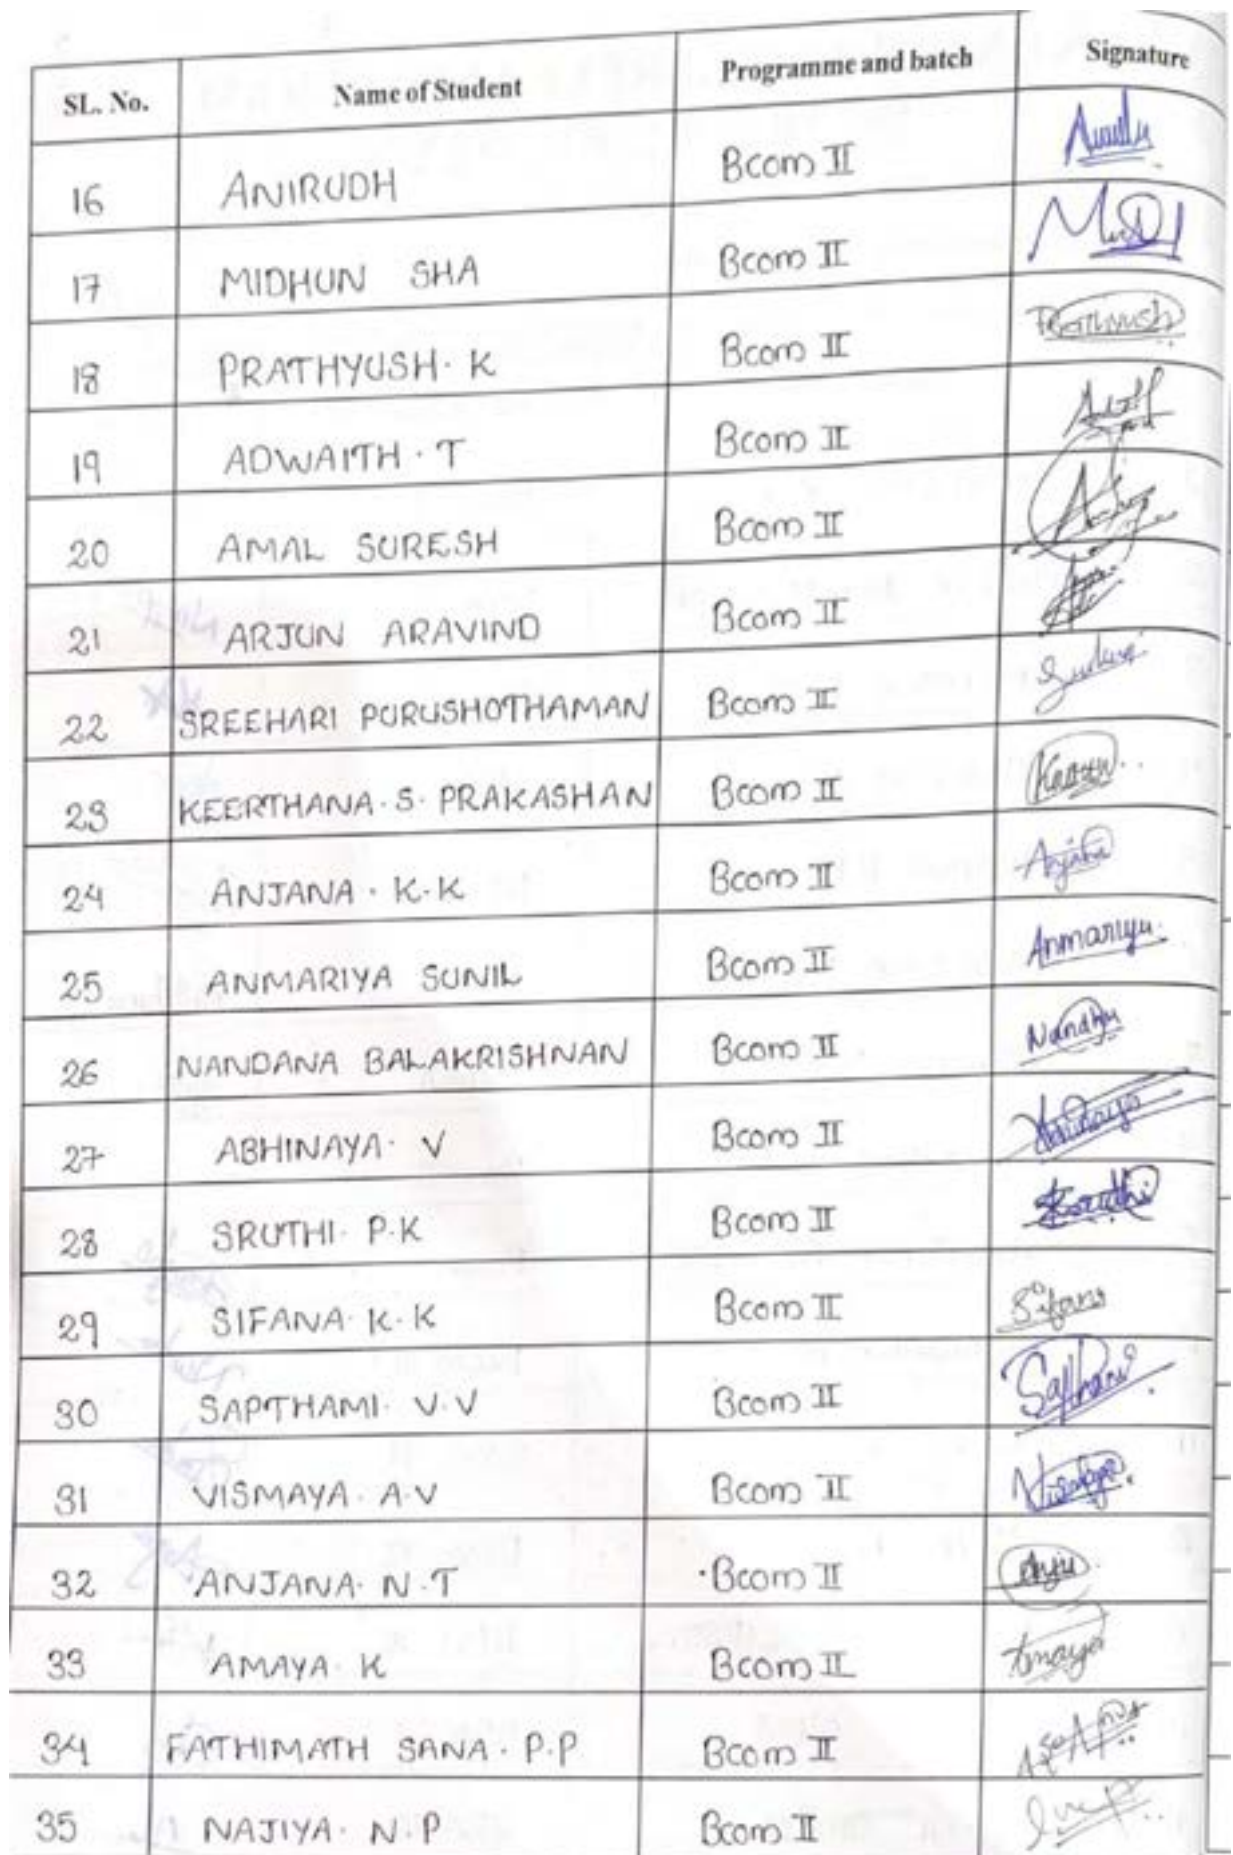 SL. No. Name of Student Programme and batch Signature
16 ANIRUDH Bcom II
17 MIDHUN SHA Bcom II
18 PRATHYUSH. K Bcom II Prathyush
19 ADWAITH. T Bcom II
20 AMAL SURESH Bcom II
21 ARJUN ARAVIND Bcom II
22 SREEHARI PURUSHOTHAMAN Bcom II
23 KEERTHANA. S. PRAKASHAN Bcom II
24 ANJANA. K.K Bcom II Anjana
25 ANMARIYA SUNIL Bcom II Anmariya.
26 NANDANA BALAKRISHNAN Bcom II
27 ABHINAYA. V Bcom II Abhinaya
28 SRUTHI. P.K Bcom II Sruthi
29 SIFANA. K.K Bcom II Sifana
30 SAPTHAMI. V.V Bcom II
31 VISMAYA. A.V Bcom II
32 ANJANA. N.T Bcom II Anju
33 AMAYA. K Bcom II Amaya
34 FATHIMATH SANA. P.P Bcom II
35 NAJIYA. N.P Bcom II